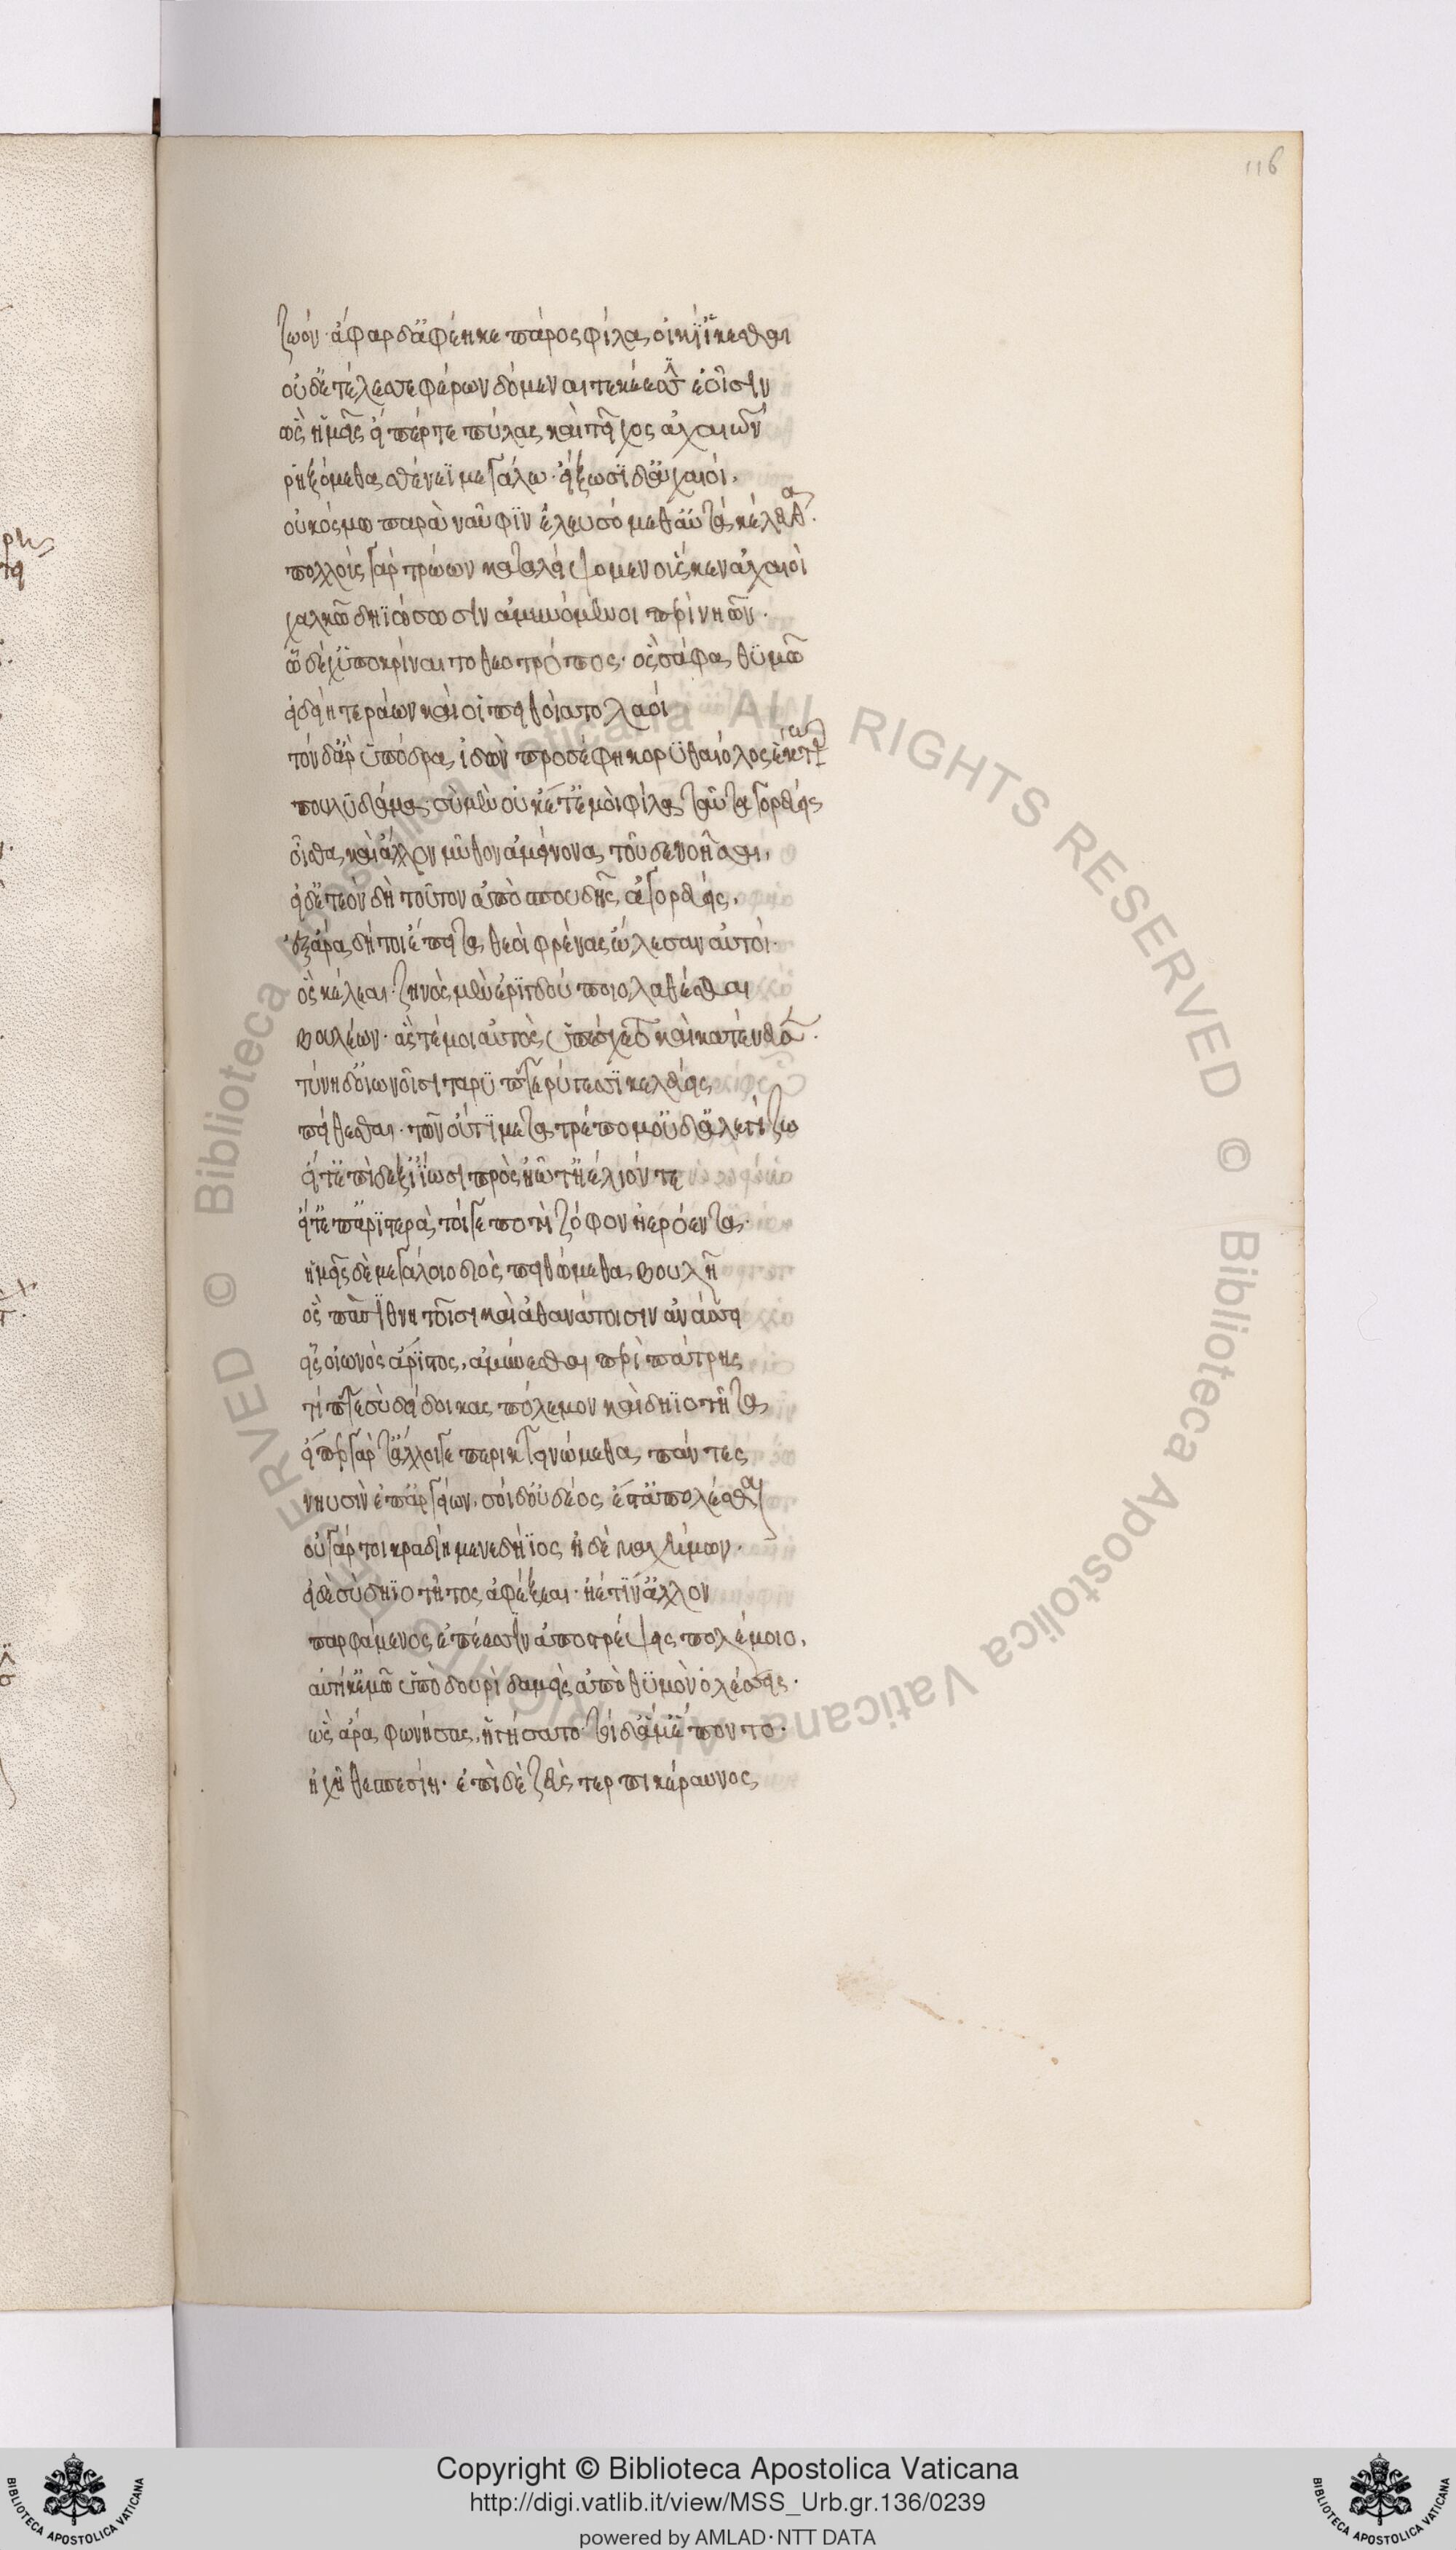 116
ζωόν· ἄφαρ δ' ἀφέηκε πάρος φίλα οἰκί' ἱκέσθαι
οὐδ' ἐτέλεσσε φέρων δόμεναι τεκέεσσιν ἑοῖσιν
ὣς ἡμεῖς εἴπερ τε πύλας καὶ τεῖχος ἀχαιῶν
ῥηξόμεθα σθένεϊ μεγάλω· εἴξωσι δ' ἀχαιοί.
οὐ κόσμω παρὰ ναῦφιν ἐλευσόμεθ' αὐτὰ κέλευθα.
πολλοὺς γὰρ τρώων καταλείψομεν οὕς κεν ἀχαιοὶ
χαλκῶ δηϊώσωσιν ἀμυνόμενοι περὶ νηῶν.
ὧδέ χ' ὑποκρίναιτο θεοπρόπος· ὃς σάφα θυμῶ
εἰδείη τεράων καί οἱ πειθοίατο λαοί
τὸν δ' ἄρ' ὑπόδρα ἰδὼν προσέφη κορυθαίολος ἕκτωρ
πουλυδάμα· σὺ μὲν οὐκέτ' ἐμοὶ φίλα ταῦτ' ἀγορεύεις
οἶσθα καὶ ἄλλον μῦθον ἀμείνονα τοῦδε νοῆσαι.
εἰ δ' ἐτεὸν δὴ τοῦτον ἀπὸ σπουδῆς ἀγορεύεις.
ἐξ ἄρα δή τοι ἔπειτα θεοὶ φρένας ὤλεσαν αὐτοί.
ὃς κέλεαι· ζηνὸς μὲν ἐριγδούποιο λαθέσθαι
βουλέων· ἅς τέ μοι αὐτὸς ὑπέσχετο καὶ κατένευσε.
τύνη δ' οἰωνοῖσι τανυπτερύγεσσι κελεύεις
πείθεσθαι· τῶν οὔτι μετατρέπομ' οὐδ' ἀλεγίζω
εἴτ' ἐπὶ δεξί' ἴωσι πρὸς ἠῶ τ' ἠέλιόν τε
εἴτ' ἐπ' ἀριστερὰ τοίγε ποτὶ ζόφον ἠερόεντα.
ἡμεῖς δὲ μεγάλοιο διὸς πειθώμεθα βουλῆ
ὃς πᾶσι θνητοῖσι καὶ ἀθανάτοισιν ἀνάσσει
εἷς οἰωνὸς ἄριστος, ἀμύνεσθαι περὶ πάτρης
τίπτε σὺ δείδοικας πόλεμον καὶ δηϊοτῆτα
εἴπερ γάρ τ' ἄλλοι γε περικτεινώμεθα πάντες
νηυσὶν ἐπ' ἀργείων. σοὶ δ' οὐ δέος ἔστ' ἀπολέσθαι
οὐ γάρ τοι κραδίη μενεδήϊος ἠδὲ μαχήμων.
εἰ δὲ σὺ δηϊοτῆτος ἀφέξεαι· ἠέ τιν' ἄλλον
παρφάμενος ἐπέεσσιν ἀποτρέψεις πολέμοιο,
αὐτίκ' ἐμῶ ὑπὸ δουρὶ δαμεὶς ἀπὸ θυμὸν ὀλέσσεις.
ὣς ἄρα φωνήσας, ἡγήσατο· τοὶ δ' ἅμ' ἕποντο.
ἠχῆ θεσπεσίη· ἐπὶ δὲ ζεὺς τερπικέραυνος
Copyright © Biblioteca Apostolica Vaticana
http://digi.vatlib.it/view/MSS_Urb.gr.136/0239
powered by AMLAD·NTT DATA